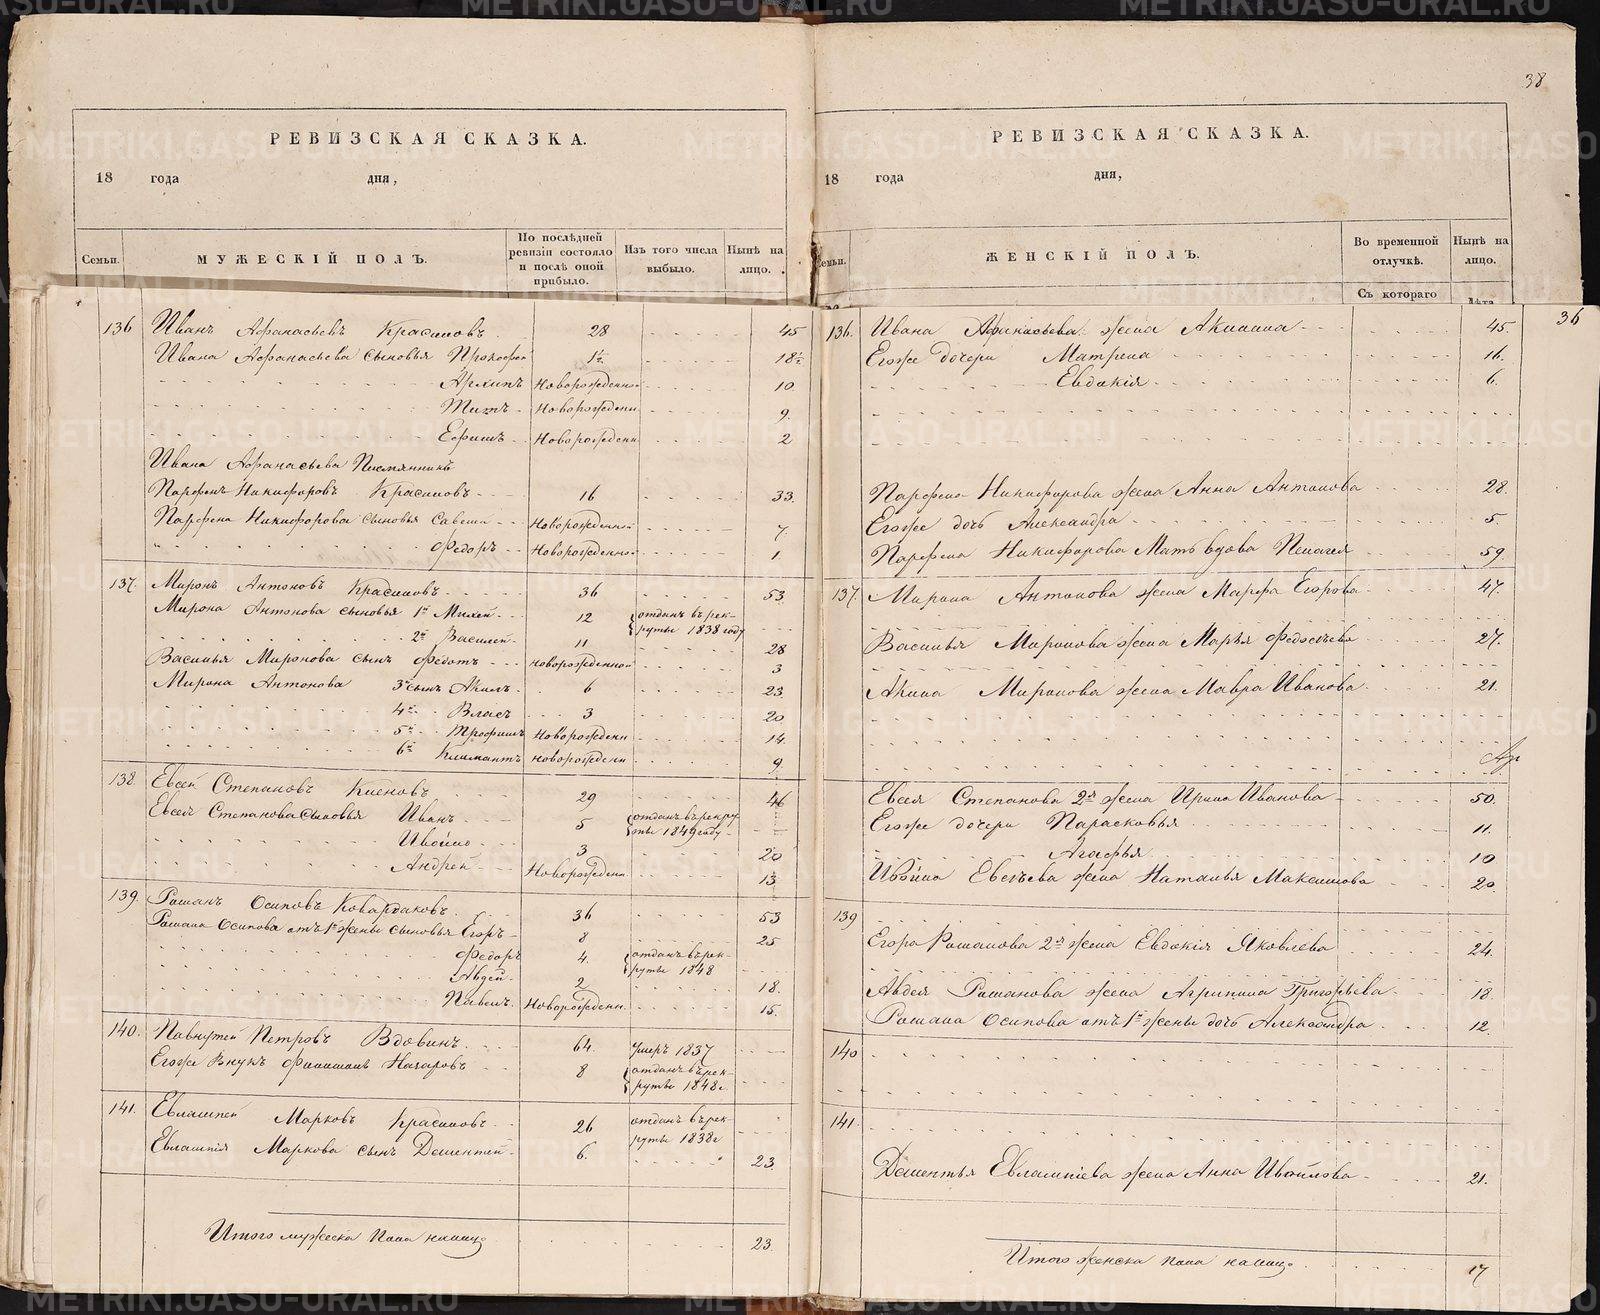 38
РЕВИЗСКАЯ СКАЗКА.
18 года дня,
Семьи.
МУЖЕСКІЙ ПОЛЪ.
По послѣдней ревизіи состояло и послѣ оной прибыло.
Изъ того числа выбыло.
Нынѣ на лицо.
136 Иванъ Афанасьевъ Красиловъ 28 45
Ивана Афанасьева сыновья Прокофей 1½ 18½
Архипъ Новорожденной 10
Титъ Новорожденн 9
Ефимъ Новорожденн 2
Ивана Афанасьева Племянникъ
Парфенъ Никифоровъ Красиловъ 16 33.
Парфена Никифорова сыновья Савелей Новорожденной 7
Федоръ Новорожденной 1.
137. Миронъ Антоновъ Красиловъ 36 53
Мирона Антонова сыновья 1й Михей 12 отданъ въ рек-
руты 1838 году
2й Василей 11 28
Василья Миронова сынъ Федотъ новорожденной 3
Мирона Антонова 3й сынъ Акимъ 6 23
4й Власъ 3 20
5й Трофимъ Новорожденн 14
6й Климантъ новорожденн 9
138. Евсей Степановъ 29 46
Евсея Степанова сыновья Иванъ 5 отданъ въ рекру
ты 1849 году
Ивойло 3 20
Андрей Новорожденн 13
139. Романъ Осиповъ 36 53
Романа Осипова отъ 1й жены сыновья Егоръ 8 25
Федоръ 4. отданъ въ рек-
руты 1848
Авдей 2 18.
Павелъ Новорожденн. 15.
140. Павнутей Петровъ Вдовинъ 64. умеръ 1837
Егоже Внукъ Филимонъ Назаровъ 8 отданъ въ рек-
руты 1848г
141. Евлампей Марковъ Красиловъ 26 отданъ въ рек-
руты 1838г
Евлампія Маркова сынъ Дементей 6. 23.
Итого мужеска пола налицо 23.
РЕВИЗСКАЯ СКАЗКА.
18 года дня,
Семьи.
ЖЕНСКІЙ ПОЛЪ.
Во временной отлучкѣ.
Нынѣ на лицо.
Съ котораго
Лѣта
36
136. Ивана Афанасьева жена Акилина 45.
Егоже дочери Матрена 16.
Евдокія 6.
Парфена Никифорова жена Анна Антонова 28.
Егоже дочь Александра 5.
Парфена Никифорова Мать вдова Пелагея 59
137. Мирона Антонова жена Марфа Егорова 47.
Василья Миронова жена Марья Федосѣева 27.
Акима Миронова жена Мавра Иванова 21.
Евсея Степанова 2я жена Ирина Иванова 50.
Егоже дочери Парасковья 11.
Агафья 10
Ивойла Евсѣева жена Наталья Максимова 20.
139 Егора Романова 2я жена Евдокія Яковлева 24.
Авдея Романова жена Агрипина Григорьева 18.
Романа Осипова отъ 1й жены дочь Александра 12.
140
141.
Дементья Евлампіева жена Анна Ивойлова 21.
Итого женска пола налицо 17
METRIKI.GASO-URAL.RU